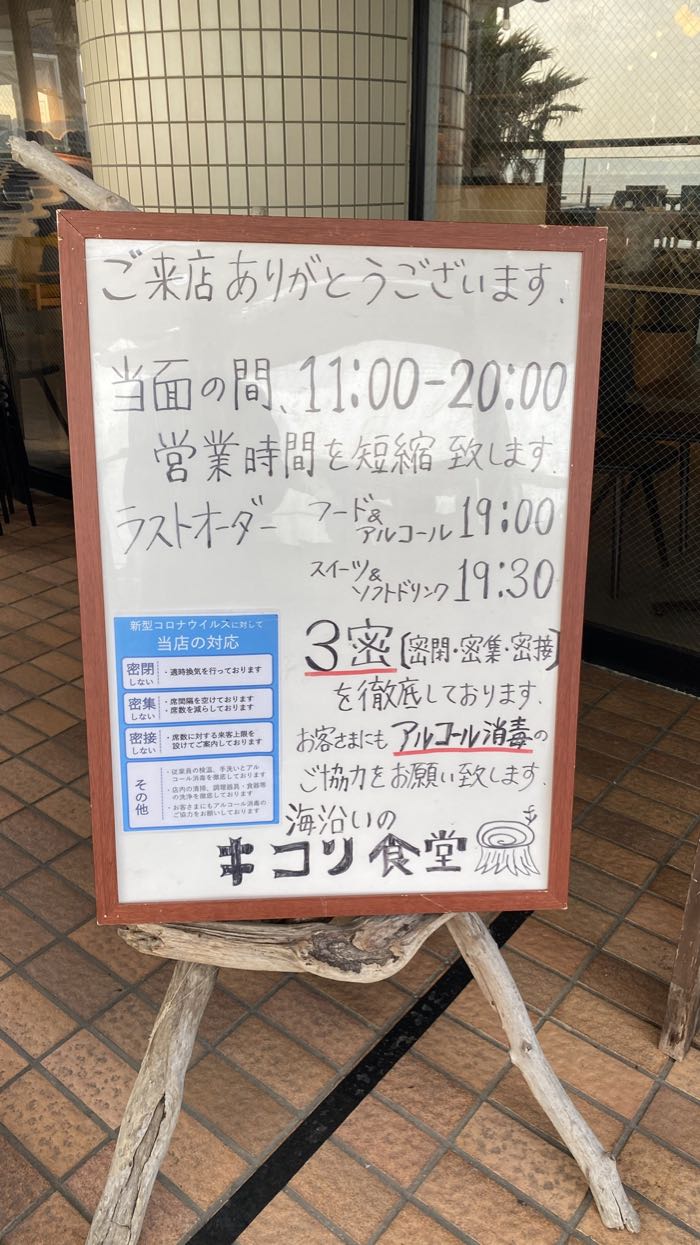 ご来店ありがとうございます.
当面の間、11:00-20:00
営業時間を短縮致します.
ラストオーダー フード&アルコール 19:00
スイーツ&ソフトドリンク 19:30
新型コロナウイルスに対して
当店の対応
密閉しない ・適時換気を行っております
密集しない ・席間隔を空けております
・席数を減らしております
密接しない ・席数に対する来客上限を
設けてご案内しております
その他 ・従業員の検温、手洗いとアル
コール消毒を徹底しております
・店内の清掃、調理器具・食器等
の洗浄を徹底しております
・お客さまにもアルコール消毒の
ご協力をお願いしております
3密〔密閉・密集・密接〕
を徹底しております.
お客さまにも アルコール消毒の
ご協力をお願い致します.
海沿いの
キコリ食堂